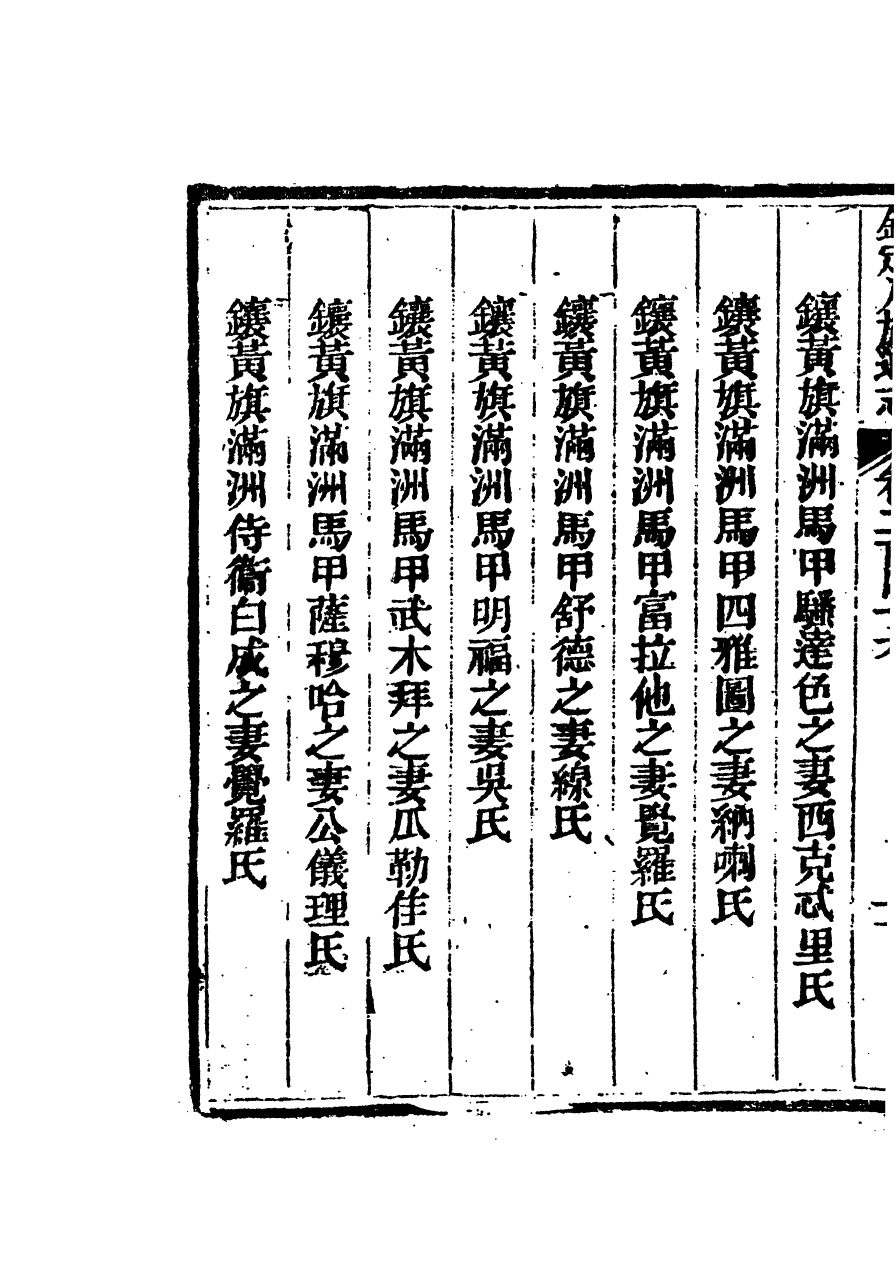 欽定八旗通志 卷二百四十六
鑲黃旗滿洲馬甲騷達色之妻西克忒里氏
鑲黃旗滿洲馬甲四雅圖之妻納喇氏
鑲黃旗滿洲馬甲富拉他之妻覺羅氏
鑲黃旗滿洲馬甲舒德之妻線氏
鑲黃旗滿洲馬甲明福之妻吳氏
鑲黃旗滿洲馬甲武木拜之妻瓜勒佳氏
鑲黃旗滿洲馬甲薩穆哈之妻公儀理氏
鑲黃旗滿洲侍衛白成之妻覺羅氏